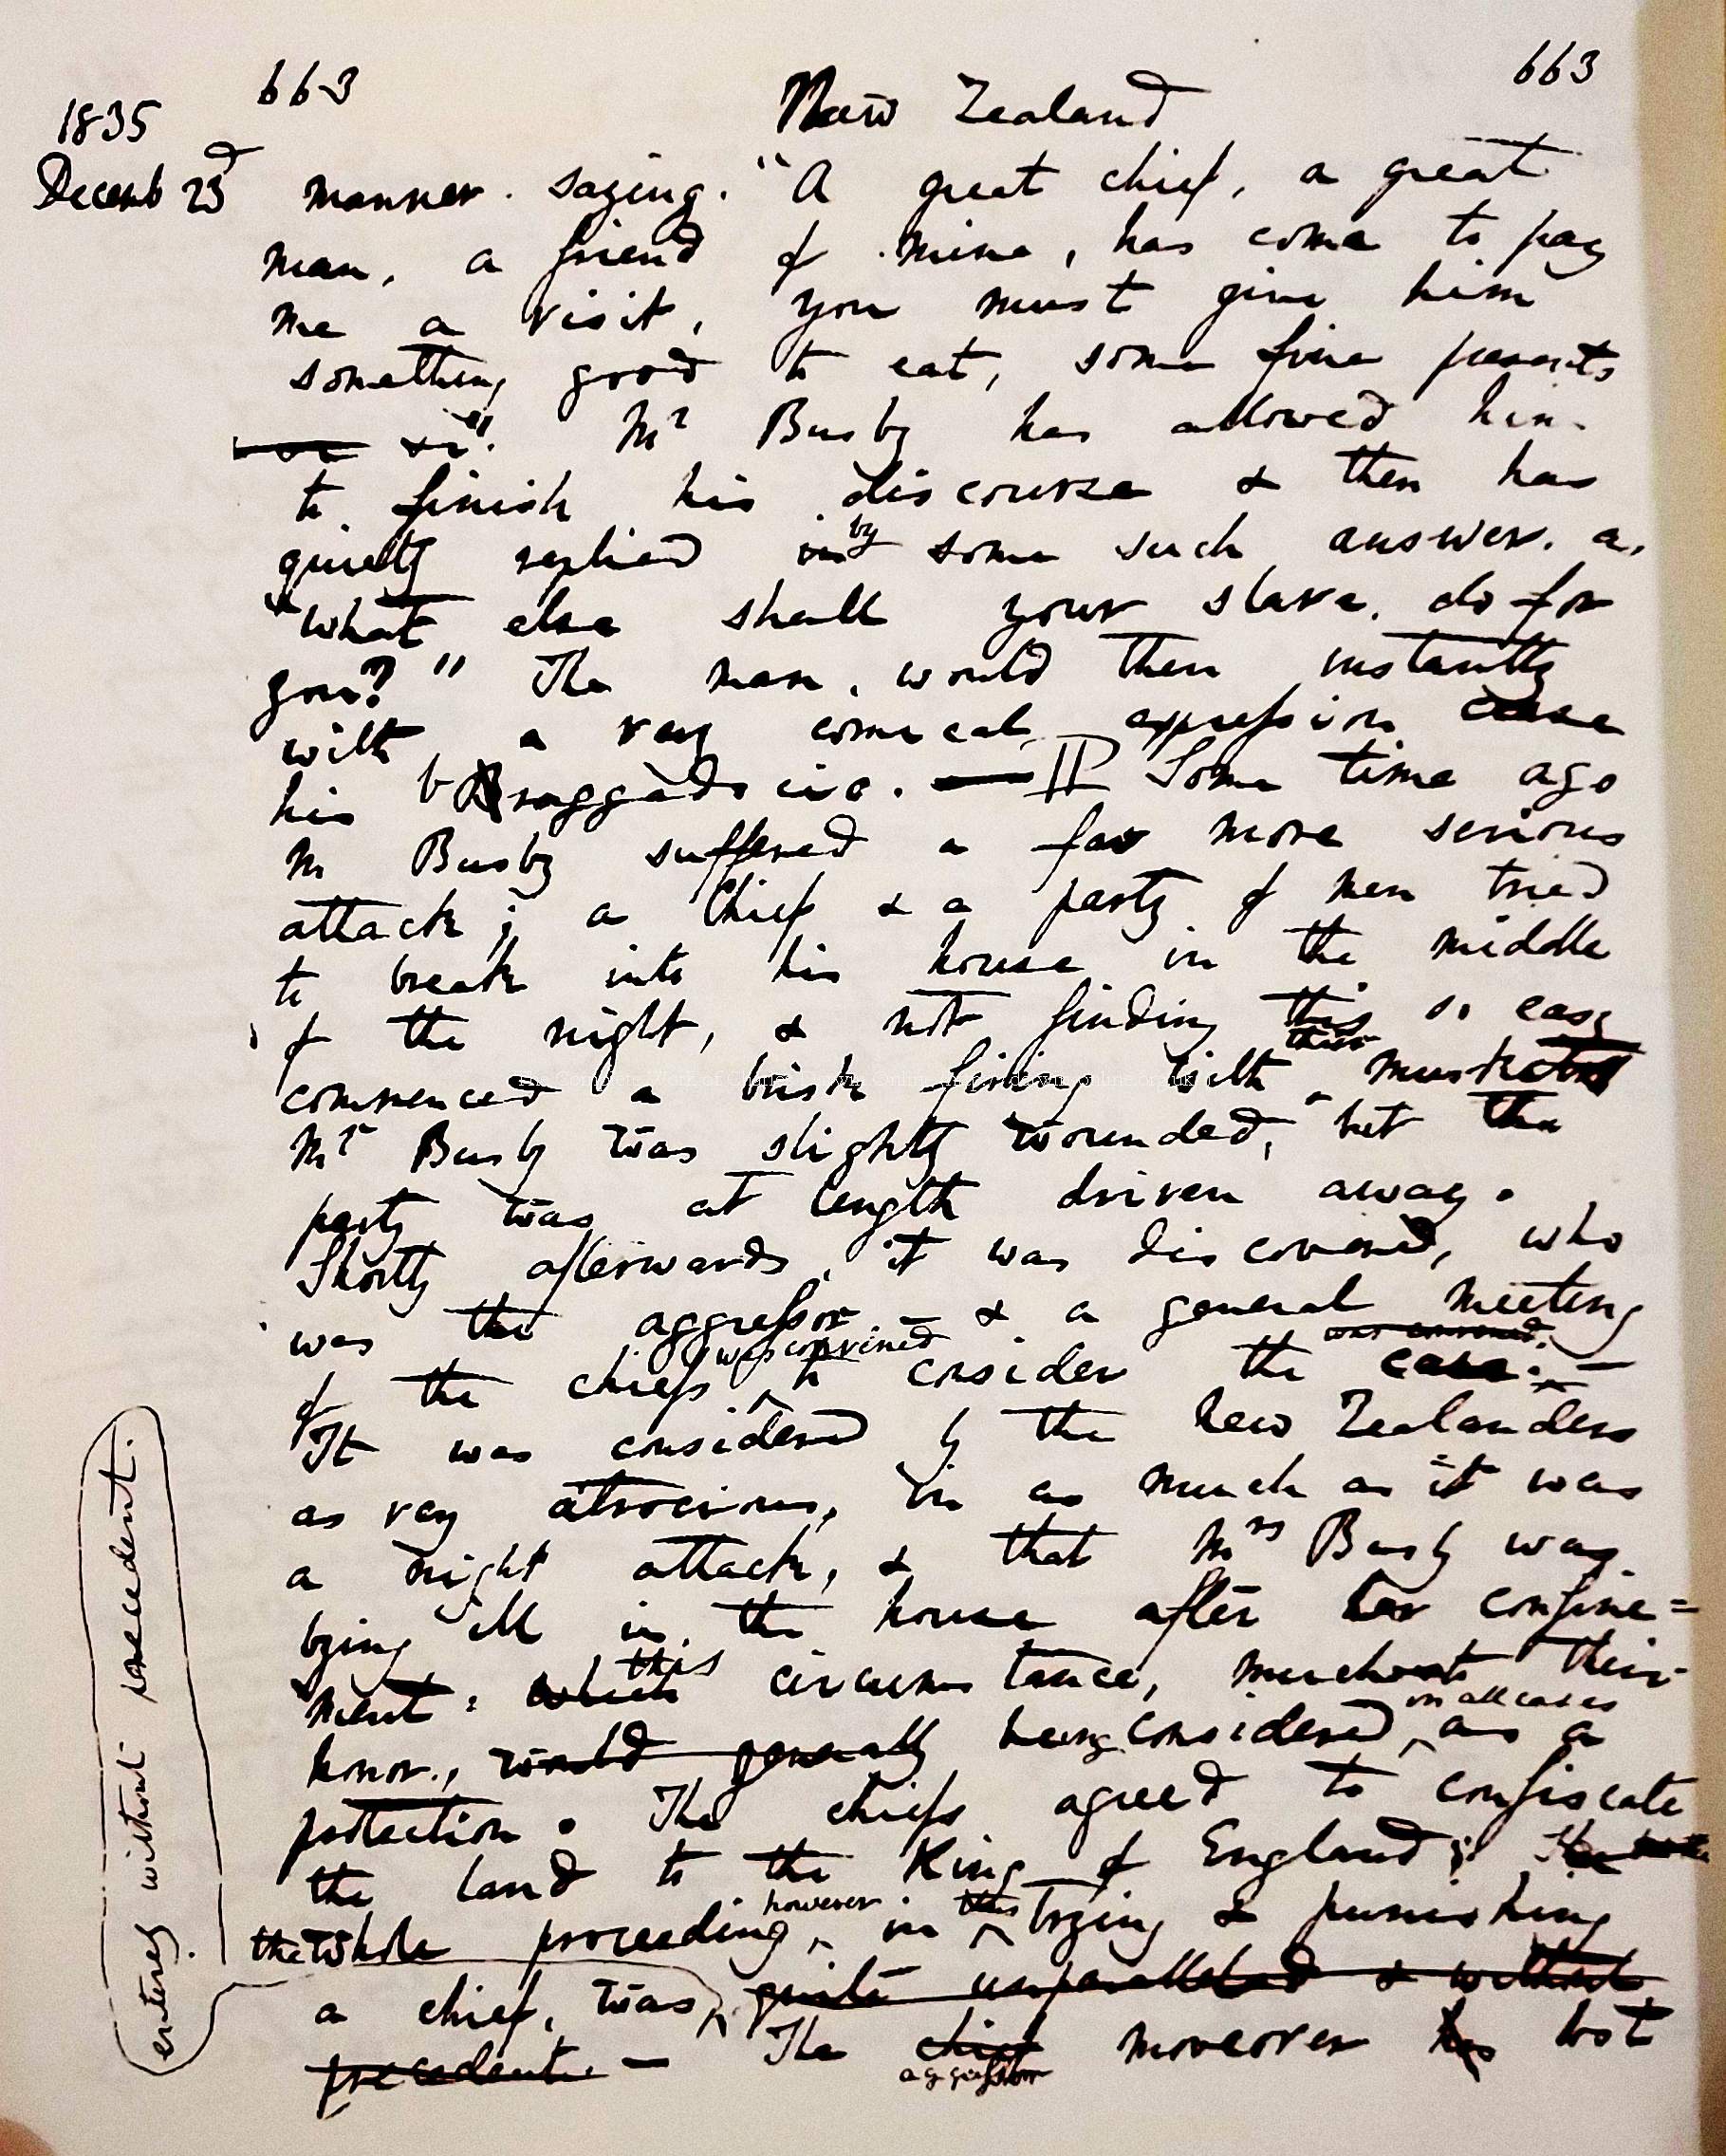 663 New Zealand 663
1835
Decemb 23d
manner. saying. "A great chief, a great
man, a friend of mine, has come to pay
me a visit, you must give him
something good to eat, some fine presents
&c &c". Mr Busby has allowed him
to finish his discourse & then has
quietly replied by some such answer. as
"what else shall your slave. do for
you?" The man. would then instantly
with a very comical expression cease
his braggadocio. — Some time ago
Mr Busby suffered a far more serious
attack; a Chief & a party of men tried
to break into his house in the middle
of the night, & not finding this so easy
their
commenced a brisk firing with muskets
Mr Busby was slightly wounded, but the
party was at length driven away.
Shortly afterwards, it was discovered, who
was the aggressor — & a general meeting
was convened was convened
of the chiefs to consider the case. —
It was considered by the New Zealanders
as very atrocious, in as much as it was
a night attack, & that Mrs Busby was
lying ill in the house after her confine=
this
ment: which circumstance, much to their
in all cases
honor., would generally being considered as a
protection. The chiefs agreed to confiscate
the land to the King of England;
however this
the whole proceeding in trying & punishing
a chief, was quite unparalleled & without
precedent. — The chief moreover has lost
aggressor
entirely without precedent.